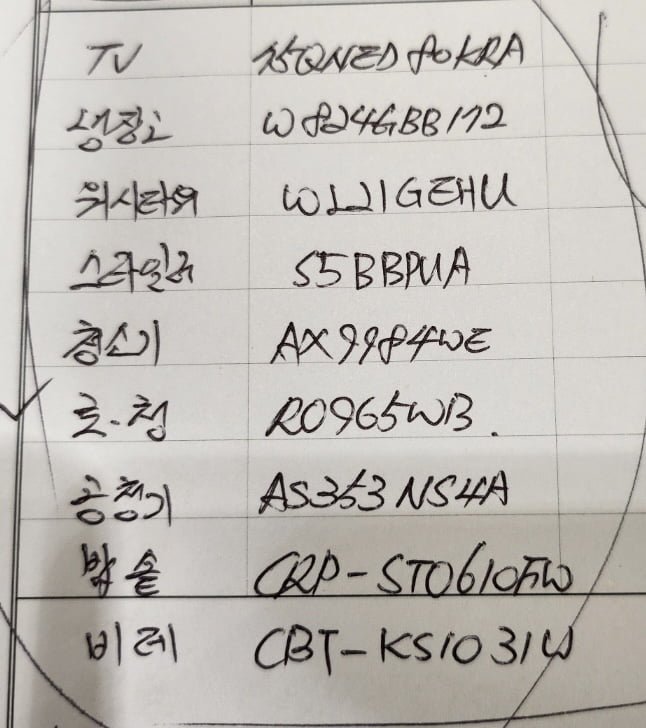 TV 75QNED80KRA
냉장고 W824GBB172
워시타워 WL21GEHU
스타일러 S5BBPUA
청소기 AX9984WE
로.청 RO965WB.
공청기 AS353NS4A
밥솥 CRP-ST0610FW
비데 CBT-KS1031W